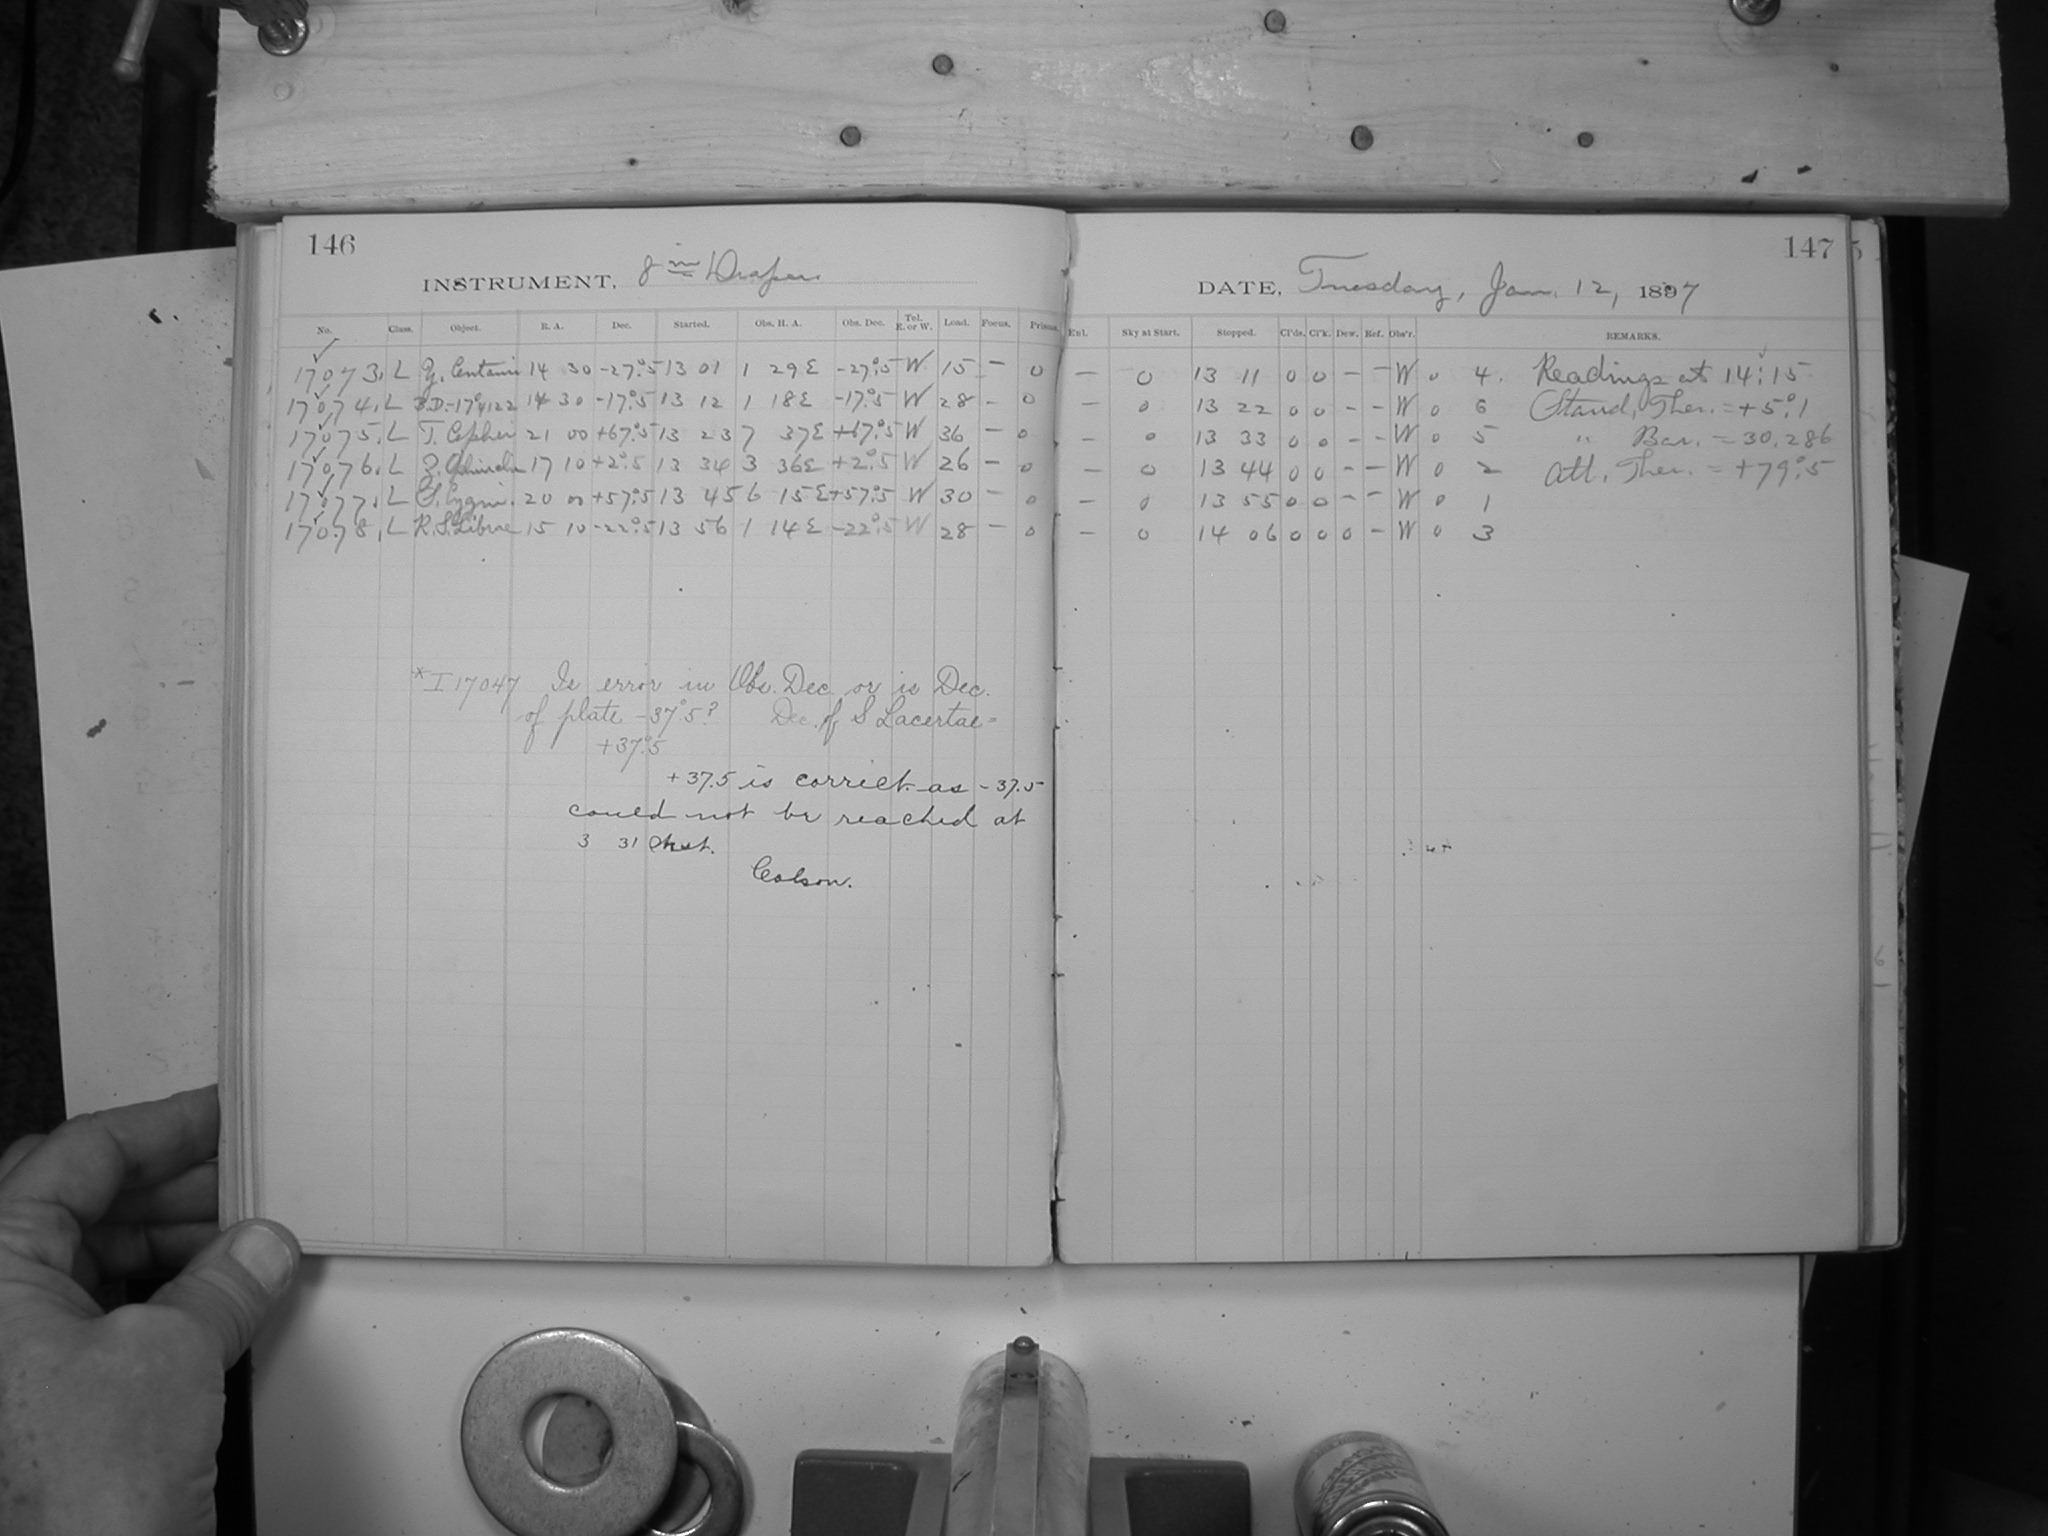 146
INSTRUMENT, 8 in Draper
No. Class. Object. R. A. Dec. Started. Obs. H. A. Obs. Dec. Tel. E. or W. Load. Focus. Prisms.
17073, L Y. Centauri 14 30 -27°.5 13 01 1 29 E -27°.5 W 15 - 0
17074, L B.D.-17°4122 14 30 -17°.5 13 12 1 18 E -17°.5 W 28 - 0
17075, L T. Cephei 21 00 +67°.5 13 23 7 37 E +67°.5 W 36 - 0
17076, L Z. Ophiuchi 17 10 +2°.5 13 34 3 36 E +2°.5 W 26 - 0
17077, L S. Cygni. 20 00 +57°.5 13 45 6 15 E +57°.5 W 30 - 0
17078, L R. S. Librae 15 10 -22°.5 13 56 1 14 E -22°.5 W 28 - 0
*I 17047 Is error in Obs. Dec or is Dec.
of plate -37°.5? Dec. of S Lacertae =
+37°.5
+37.5 is correct as -37.5
could not be reached at
3 31 West.
Colson.
147
DATE, Tuesday, Jan. 12, 1897
Enl. Sky at Start. Stopped. Cl'ds. Cl'k. Dew. Ref. Obs'r. REMARKS.
- 0 13 11 0 0 - - W 0 4. Readings at 14:15
- 0 13 22 0 0 - - W 0 6 Stand. Ther. = +5°.1
- 0 13 33 0 0 - - W 0 5 " Bar. = 30.286
- 0 13 44 0 0 - - W 0 2 Att. Ther. = +79°.5
- 0 13 55 0 0 - - W 0 1
- 0 14 06 0 0 0 - W 0 3